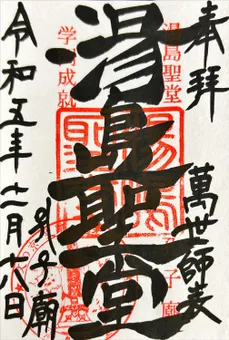 奉拝
萬世師表
湯島聖堂
湯島聖堂
学業成就
孔子廟
令和五年十二月十八日